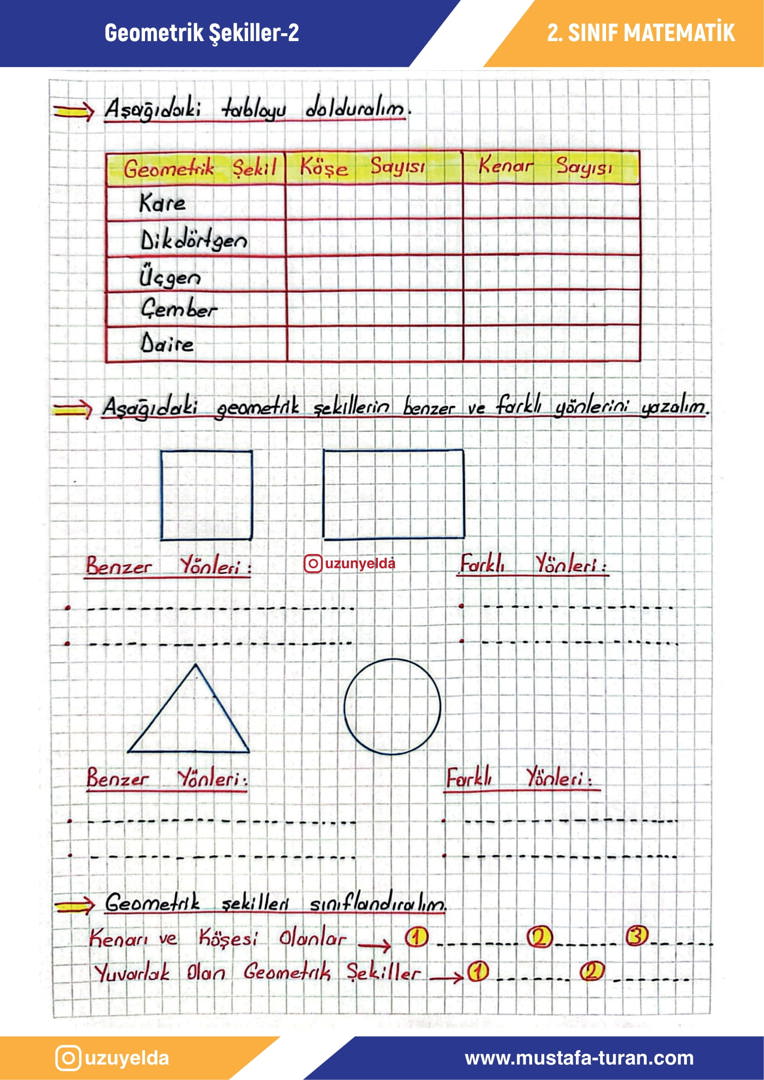 Geometrik Şekiller-2
2. SINIF MATEMATİK
Aşağıdaki tabloyu dolduralım.
Geometrik Şekil Köşe Sayısı Kenar Sayısı
Kare
Dikdörtgen
Üçgen
Çember
Daire
Aşağıdaki geometrik şekillerin benzer ve farklı yönlerini yazalım.
Benzer Yönleri: uzunyelda Farklı Yönleri:
Benzer Yönleri: Farklı Yönleri:
Geometrik şekilleri sınıflandıralım.
Kenarı ve Köşesi Olanlar → 1 2 3
Yuvarlak Olan Geometrik Şekiller → 1 2
uzuyelda
www.mustafa-turan.com